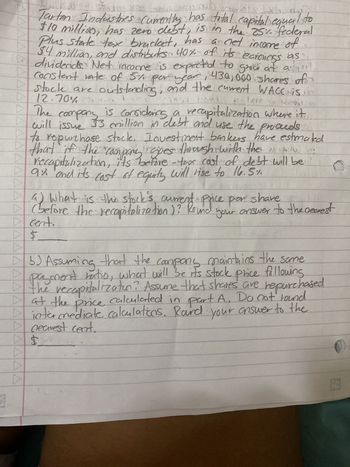 Tartan Industries currently has total capital equal to
$10 million, has zero debt, is in the 25% federal
plus state tax bracket, has a net income of
$4 million, and distributes 40% of its earnings as
dividends. Net income is expected to grow at a
constant rate of 5% per year, 430,000 shares of
stock are outstanding, and the current WACC is
12.70%
The company is considering a recapitalization where it
will issue $3 million in debt and use the proceeds
to repurchase stock. Investment bankers have estimated
that if the company goes through with the
recapitalization, its before-tax cost of debt will be
9% and its cost of equity will rise to 16.5%
a.) What is the stock's current price per share
(before the recapitalization)? Round your answer to the nearest
cent.
$
b.) Assuming that the company maintains the same
payment ratio, what will be its stock price following
the recapitalization? Assume that shares are repurchased
at the price calculated in part A. Do not round
intermediate calculations. Round your answer to the
nearest cent.
$